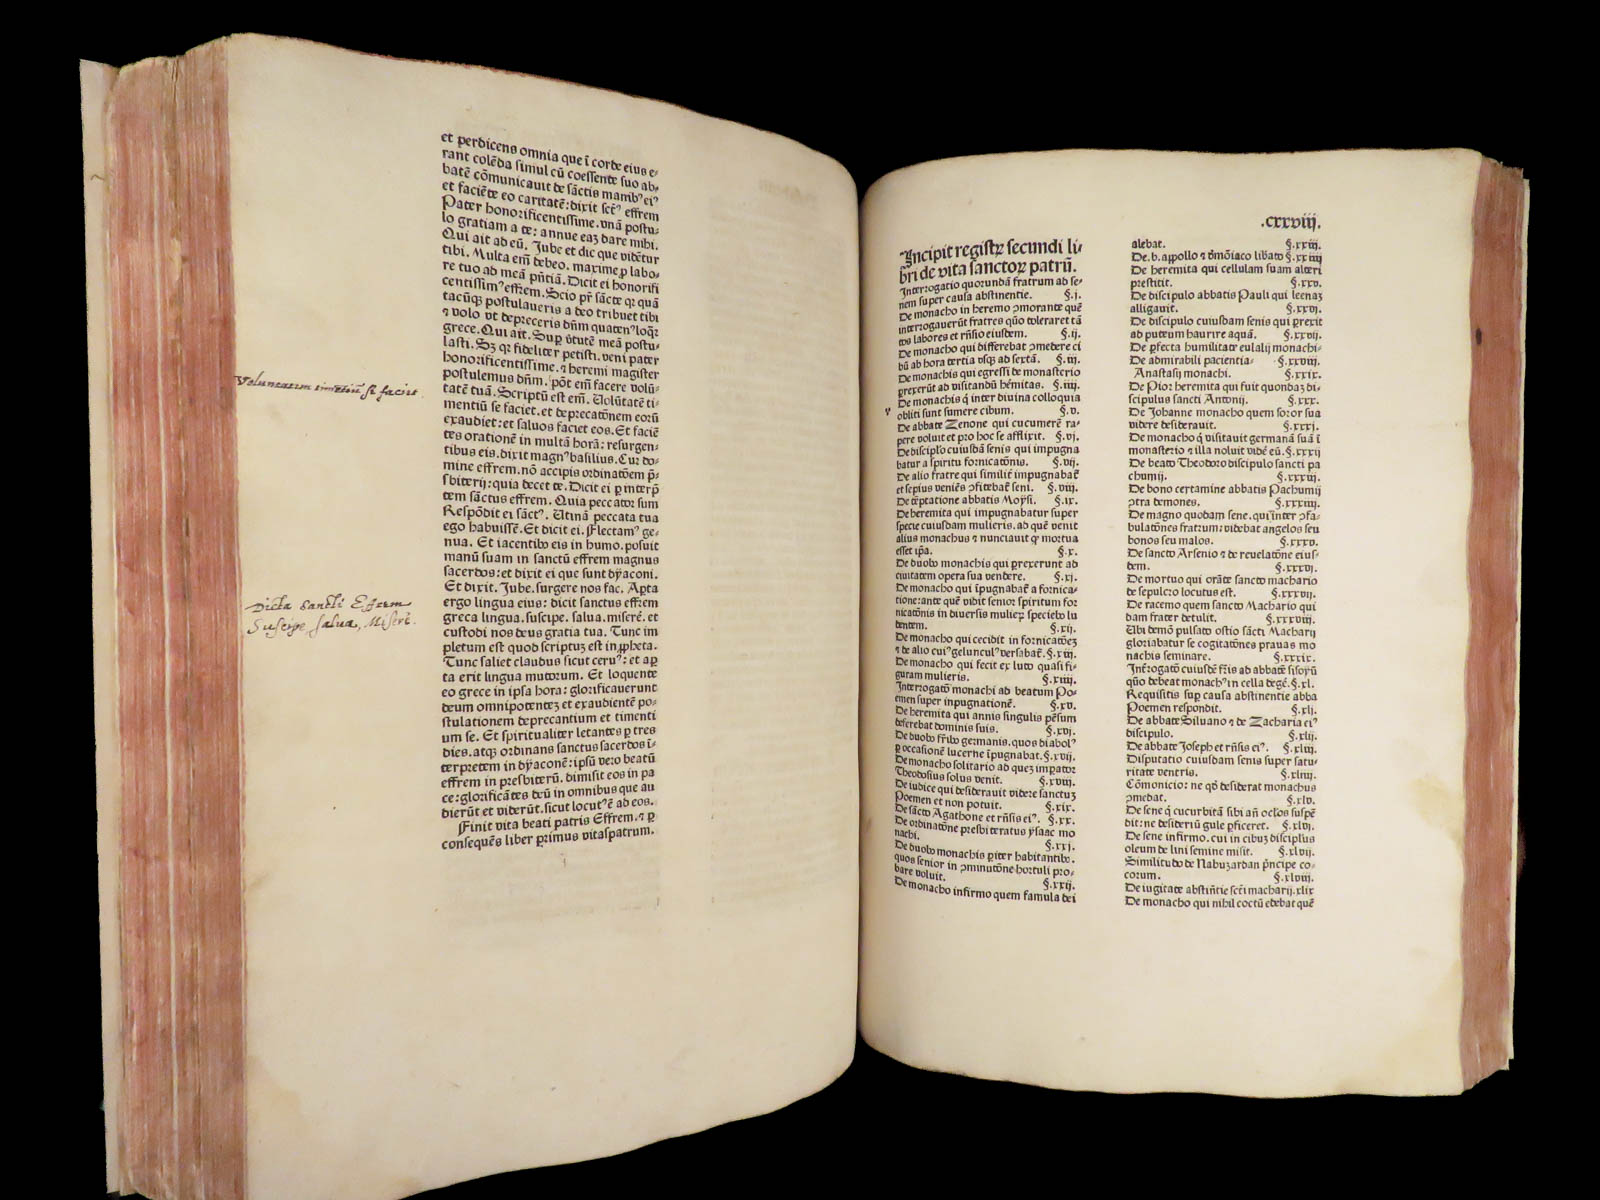 et perdicens omnia que ī corde eius e⸗
rant colēda simul cū coessente suo ab⸗
batē cōmunicauit de sāctis manibꝰ eiꝰ
et faciēte eo caritatē: dixit sctꝰ effrem
Pater honorificentissime. vnā postu⸗
lo gratiam a te: annue eaȝ dare mihi.
Qui ait ad eū. Jube et dic que vidētur
tibi. Multa em̄ debeo. maxime ꝓ labo⸗
re tuo ad meā pn̄tiā. Dicit ei honorifi
centissimꝰ effrem. Scio pr̄ sācte qꝛ quā
tacūqȝ postulaueris a deo tribuet tibi
⁊ volo vt depreceris dn̄m quatenꝰ loqr̄
grece. Qui ait. Supꝛ v̄tutē meā postu⸗
lasti. Sȝ qꝛ fideliter petisti. veni pater
honorificentissime. ⁊ heremi magister
postulemus dn̄m. pōt em̄ facere volū⸗
tatē tuā. Scriptū est em̄. Uolūtatē ti⸗
mentiū se faciet. et deprecatōnem eorū
exaudiet: et saluos faciet eos. Et faciē
tes orationē in multā horā: resurgen⸗
tibus eis. dixit magnꝰ basilius. Cur do⸗
mine effrem. nō accipis ordinatōem p̄⸗
sbiterij: quia decet te. Dicit ei ꝑ interp̄
tem sāctus effrem. Quia peccator sum
Respōdit ei sāctꝰ. Utinā peccata tua
ego habuissē. Et dicit ei. Flectamꝰ ge⸗
nua. Et iacentibꝰ eis in humo. posuit
manū suam in sanctū effrem magnus
sacerdos: et dixit ei que sunt dyaconi.
Et dixit. Jube. surgere nos fac. Apta
ergo lingua eius: dicit sanctus effrem
greca lingua. suscipe. salua. miserē. et
custodi nos deus gratia tua. Tunc im
pletum est quod scriptuȝ est in ꝓpheta.
Tunc saliet claudus sicut ceruꝰ: et apꝛ
ta erit lingua mutorum. Et loquente
eo grece in ipsa hora: glorificauerunt
deum omnipotenteȝ et exaudientē po⸗
stulationem deprecantium et timenti
um se. Et spiritualiter letantes ꝑ tres
dies. atqȝ ordinans sanctus sacerdos ī⸗
terpretem in dyaconē: ipsū vero beatū
effrem in presbiterū. dimisit eos in pa
ce: glorificātes deū in omnibus que au
dierūt et viderūt. sicut locutꝰ ē ad eos.
Finit vita beati patris Effrem. ⁊ ꝑ
consequēs liber primus vitaspatrum.
Voluntatem timētiū se faciet.
Dicta Sancti Effrem
Suscipe, salua, Miserē.
.cxxviij.
Incipit registꝝ secundi li⸗
bri de vita sanctoꝝ patrū.
Interrogatio quorundā fratrum ad se⸗
nem super causa abstinentie. §.j.
De monacho in heremo ꝯmorante quē
interrogauerūt fratres qūo toleraret tā
tos labores et rn̄sio eiusdem. §.ij.
De monacho qui differebat ꝯmedere ci
bū ab hora tertia vsqȝ ad sextā. §.iij.
De monachis qui egressi de monasterio
prexerūt ad visitandū h̄emitas. §.iiij.
De monachis q̇ inter diuina colloquia
obliti sunt sumere cibum. §.v.
De abbate Zenone qui cucumerē ra⸗
pere voluit et pro hoc se afflixit. §.vj.
De discip̄lo cuiusdā senis qui impugna
batur a spiritu fornicatōnis. §.vij.
De alio fratre qui similit̄ impugnabat̄
et sepius veniēs ꝯfitebat̄ seni. §.viij.
De tēptatione abbatis Moysi. §.ix.
De heremita qui impugnabatur super
specie cuiusdam mulieris. ad quē venit
alius monachus ⁊ nunciauit qꝛ mortua
esset ip̄a. §.x.
De duobꝰ monachis qui prexerunt ad
ciuitatem opera sua vendere. §.xj.
De monacho qui īpugnabat̄ a fornica⸗
tione: ante quē vidit senior spiritum for
nicatōnis in diuersis mulieꝝ speciebꝰ lu
dentem. §.xij.
De monacho qui cecidit in fornicatōeȝ
⁊ de alio cuiꝰ gelunculꝰ versabat̄. §.xiij.
De monacho qui fecit ex luto quasi fi⸗
guram mulieris. §.xiiij.
Interrogatō monachi ad beatum Poe⸗
emen super inpugnationē. §.xv.
De heremita qui annis singulis pēsum
deferebat dominis suis. §.xvj.
De duobꝰ fr̄ibꝰ germanis. quos diabolꝰ
ꝑ occasionē lucerne īpugnabat. §.xvij.
De monacho solitario ad queȝ imꝑator
Theodosius solus venit. §.xviij.
De iudice qui desiderauit videre sanctuȝ
Poemen et non potuit. §.xix.
De sācto Agathone et rn̄sis eiꝰ. §.xx.
De ordinatōne presbiteratus ysaac mo
nachi. §.xxj.
De duobꝰ monachis ꝑiter habitantibꝰ.
quos senior in ꝯminutōne hortuli pro⸗
bare voluit. §.xxij.
De monacho infirmo quem famula dei
alebat. §.xxiij.
De .b. appollo ⁊ d̄moniaco lib̄ato §.xxiiij
De heremita qui cellulam suam alteri
prestitit. §.xxv.
De discipulo abbatis Pauli qui leenaȝ
alligauit. §.xxvj.
De discipulo cuiusdam senis qui ꝑrexit
ad puteum haurire aquā. §.xxvij.
De ꝑfecta humilitate eulalij monachi⸗
De admirabili pacientia §.xxviij.
Anastasij monachi. §.xxix.
De Pior heremita qui fuit quondaȝ di⸗
scipulus sancti Antonij. §.xxx.
De Johanne monacho quem soror sua
videre desiderauit. §.xxxj.
De monacho q̇ visitauit germanā suā ī
monasterio ⁊ illa noluit videē eū. §.xxxij
De beato Theodoro discipulo sancti pa
chumij. §.xxxiij.
De bono certamine abbatis Pachumij
ꝯtra demones. §.xxxiiij.
De magno quodam sene. qui īter ꝯfa⸗
bulatōnes fratrum: videbat angelos seu
bonos seu malos. §.xxxv.
De sancto Arsenio ⁊ de reuelatōne eius⸗
dem. §.xxxvj.
De mortuo qui orāte sancto machario
de sepulcro locutus est. §.xxxvij.
De racemo quem sancto Machario qui
dam frater detulit. §.xxxviij.
Ubi demō pulsato ostio sācti Macharij
gloriabatur se cogitatōnes prauas mo
nachis seminare. §.xxxix.
Int̄rogatō cuiusdē fr̄is ad abbatē sisoyū
qūo debeat monachꝰ in cella degē. §.xl.
Requisitis supꝛ causa abstinentie abba
Poemen respondit. §.xlj.
De abbate Siluano ⁊ de Zacharia eiꝰ
discipulo. §.xlij.
De abbate Joseph et rn̄sis eiꝰ. §.xliij.
Disputatio cuiusdam senis super satu⸗
ritate ventris. §.xliiij.
Cōmonicio: ne qd̄ desiderat monachus
ꝯmedat. §.xlv.
De sene q̇ cucurbitā sibi añ oc̄los suspē
dit: ne desideriū gule ꝑficeret. §.xlvj.
De sene infirmo. cui in cibuȝ discip̄lus
oleum de lini semine misit. §.xlvij.
Similitudo de Nabuȝardan p̄ncipe co⸗
corum. §.xlviij.
De iugitate abstin̄tie sct̄i macharij. xlix
De monacho qui nihil coctū edebat quē